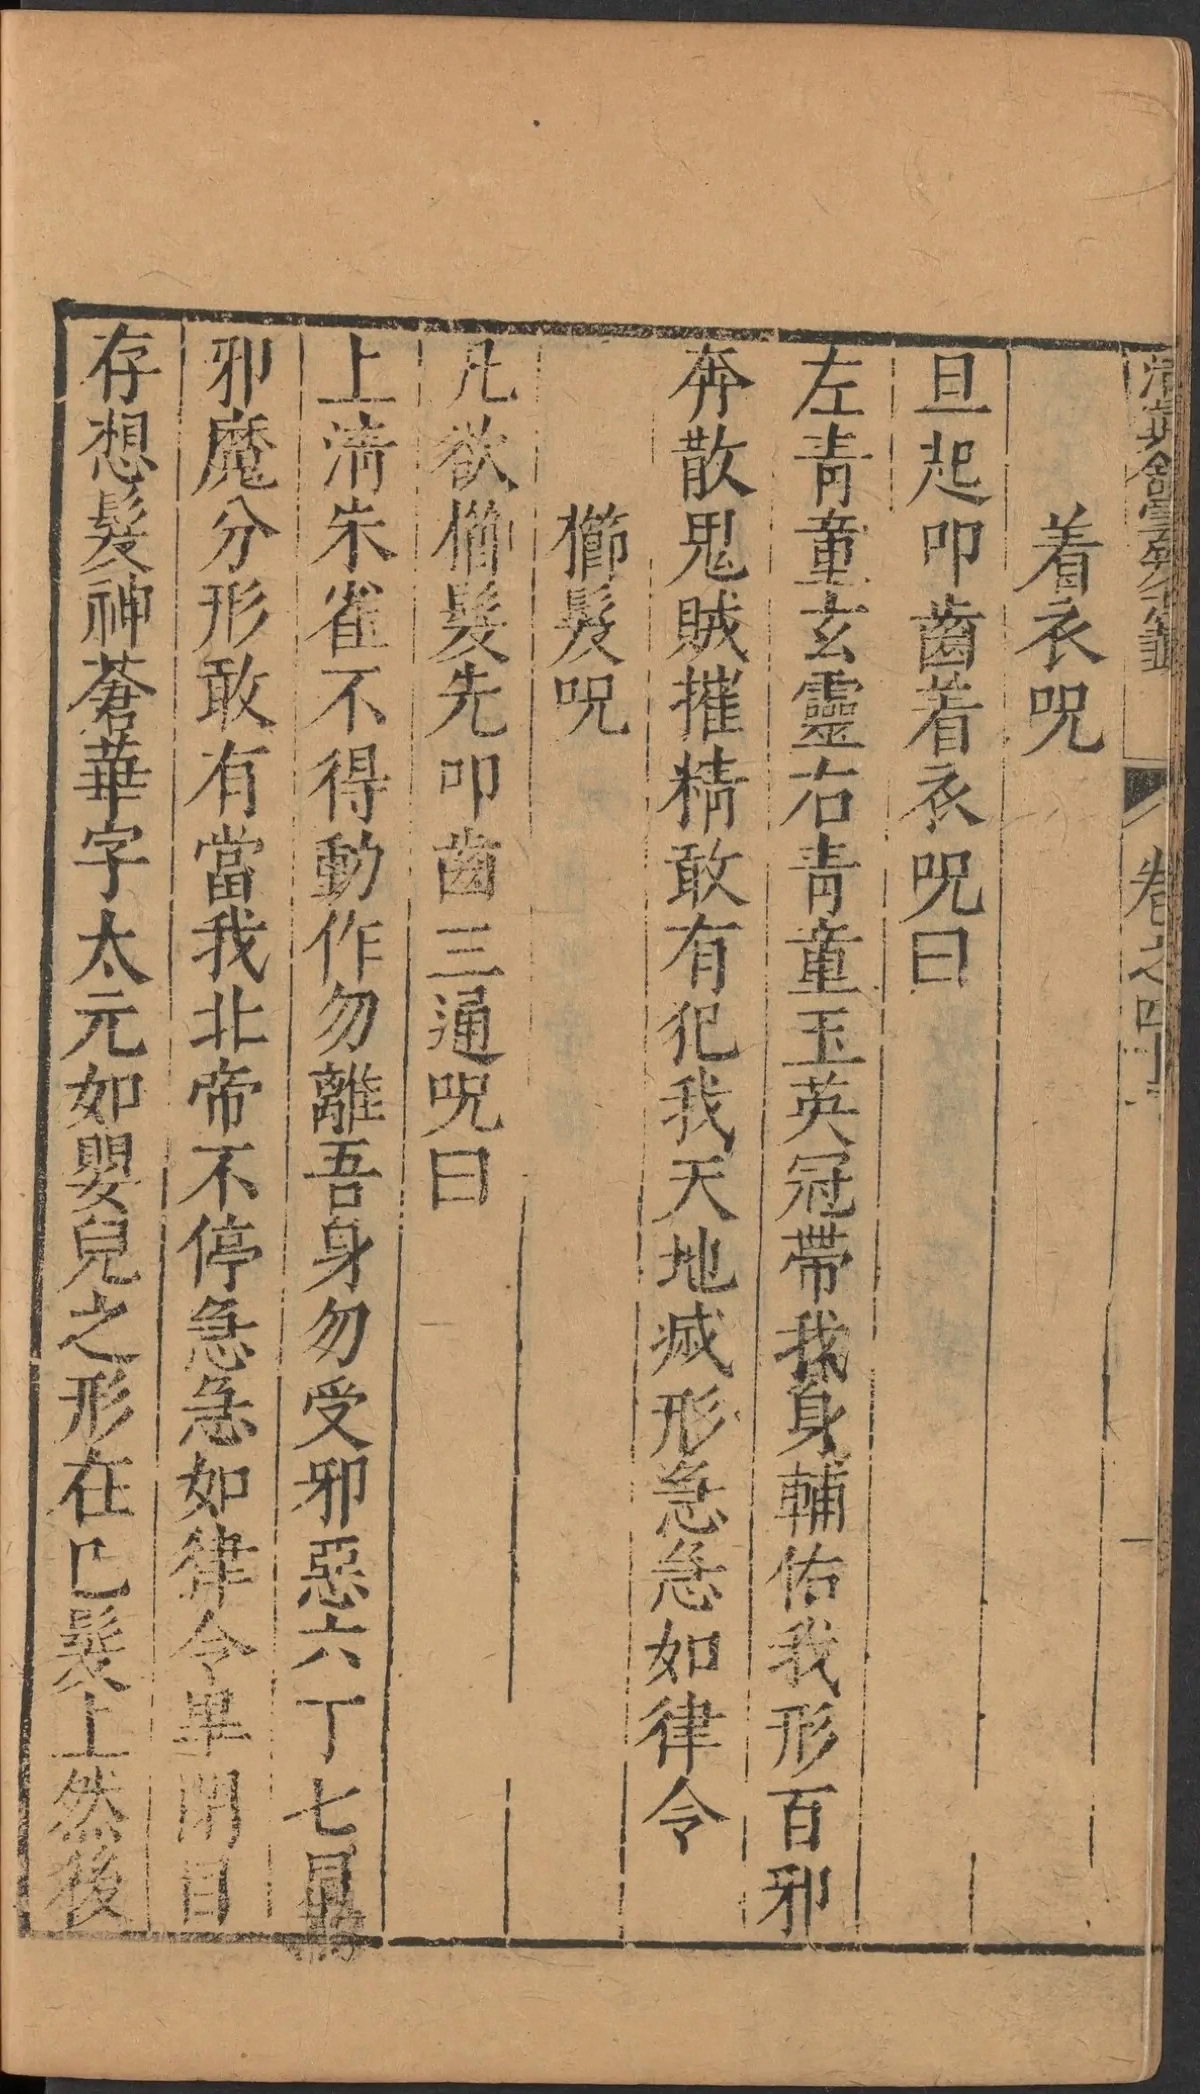 着衣呪
旦起叩齒着衣呪曰
左青童玄靈右青童玉英冠帶我身輔佑我形百邪
奔散鬼賊摧精敢有犯我天地滅形急急如律令
櫛髮呪
凡欲櫛髮先叩齒三通呪曰
上清朱雀不得動作勿離吾身勿受邪惡六丁七星
邪魔分形敢有當我北帝不停急急如律令畢閉目
存想髮神蒼華字太元如嬰兒之形在已髮上然後